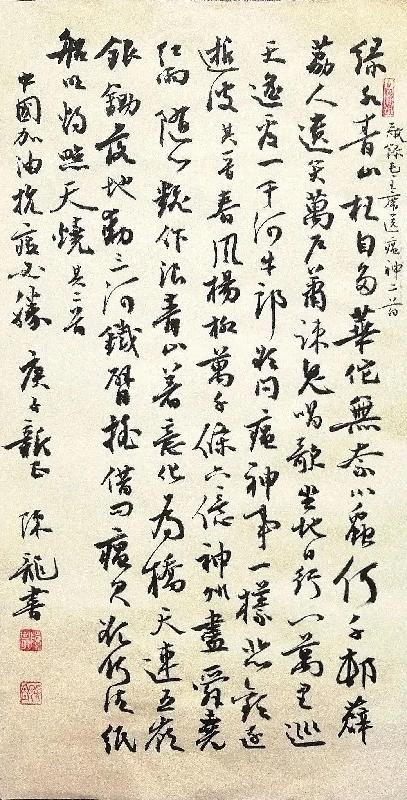 敬録毛主席送瘟神二首
绿水青山枉自多華佗無奈小蟲何千邨薜
荔人遺矢萬户蕭疎鬼唱歌坐地日行八萬里巡
天遥看一千河牛郎欲问瘟神事一樣悲歡逐
逝波其一首春風楊柳萬千條六億神州盡舜堯
红雨随心翻作浪青山着意化為橋天連五嶺
银鋤落地動三河鐵臂摇借问瘟君欲何往纸
船明烛照天燒其二首
中國加油抗疫必勝 庚子新正 陈龍書